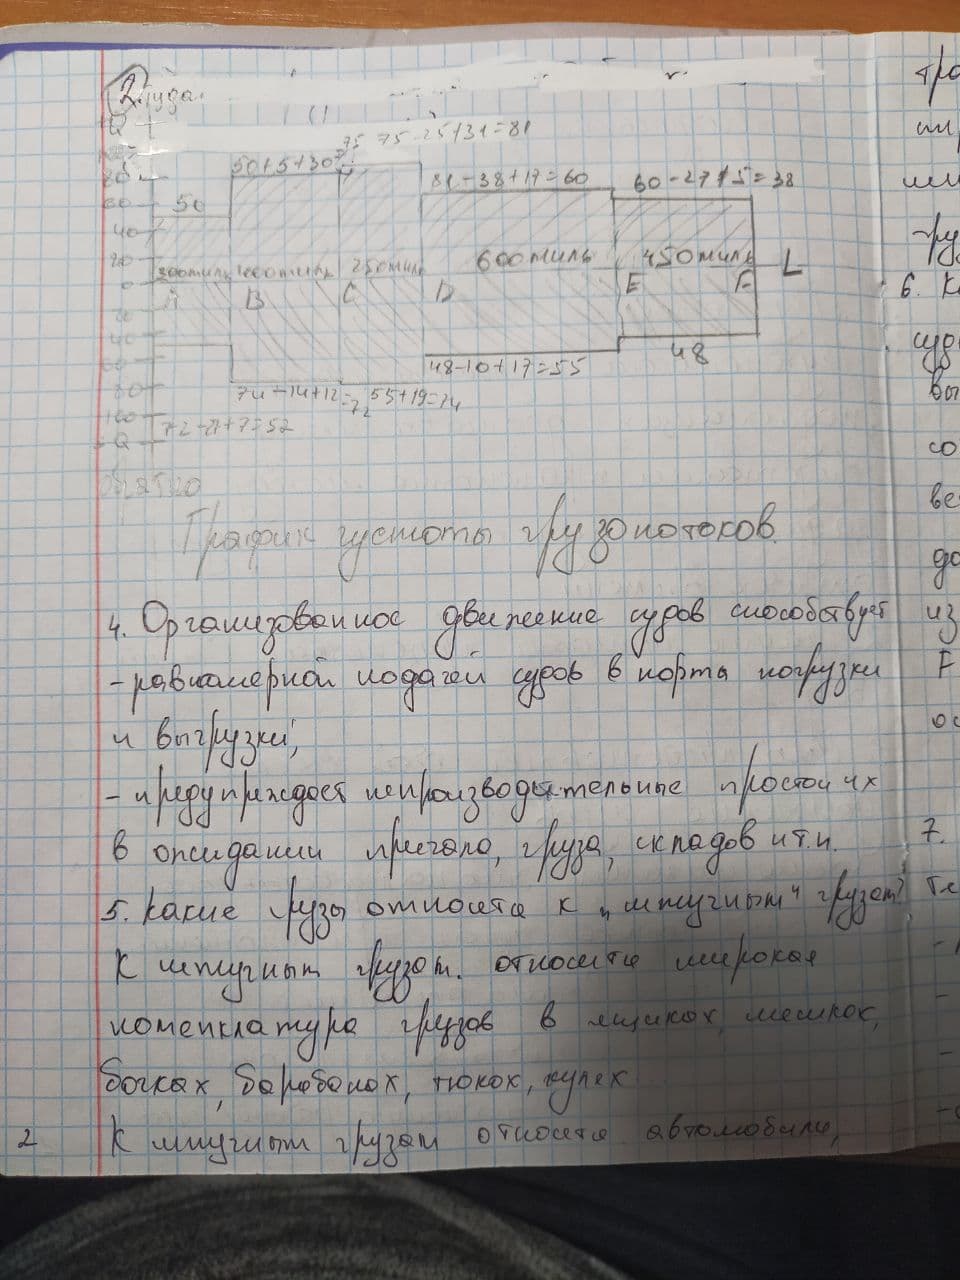 2.
Туда.
Q
75 75-25+31=81
50+5+30
81-38+17=60
60-27+5=38
80
60
50
40
20
0
300миль
1000миль
250миль
600миль
450миль
L
A
B
C
D
E
F
48
48-10+17=55
74-14+12=72
55+19=74
100
Q
Обратно
График густоты грузопотоков
4. Организованное движение судов способствует
- равномерной подачей судов в порта погрузки
и выгрузки;
- предупреждает непроизводительные простои их
в ожидании причала, груза, складов и т.п.
5. Какие грузы относятся к „штучным" грузам?
К штучным грузам. относится широкая
номенклатура грузов в ящиках, мешках,
бочках, барабанах, тюках, кулях
К штучным грузам относятся автомобили,
2
тра
гру
6. К
суд
вы
со
ве
до
из
F
ос
7.